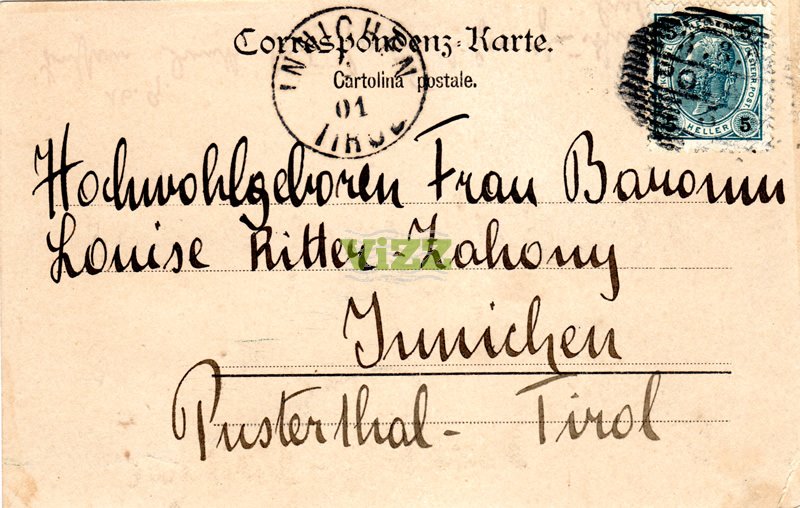 Correspondenz-Karte.
Cartolina postale.
INNICHEN
01
TIROL
HELLER
5
Hochwohlgeboren Frau Baronin
Louise Ritter-Zahony
ViZZ
Innichen
Pusterthal - Tirol